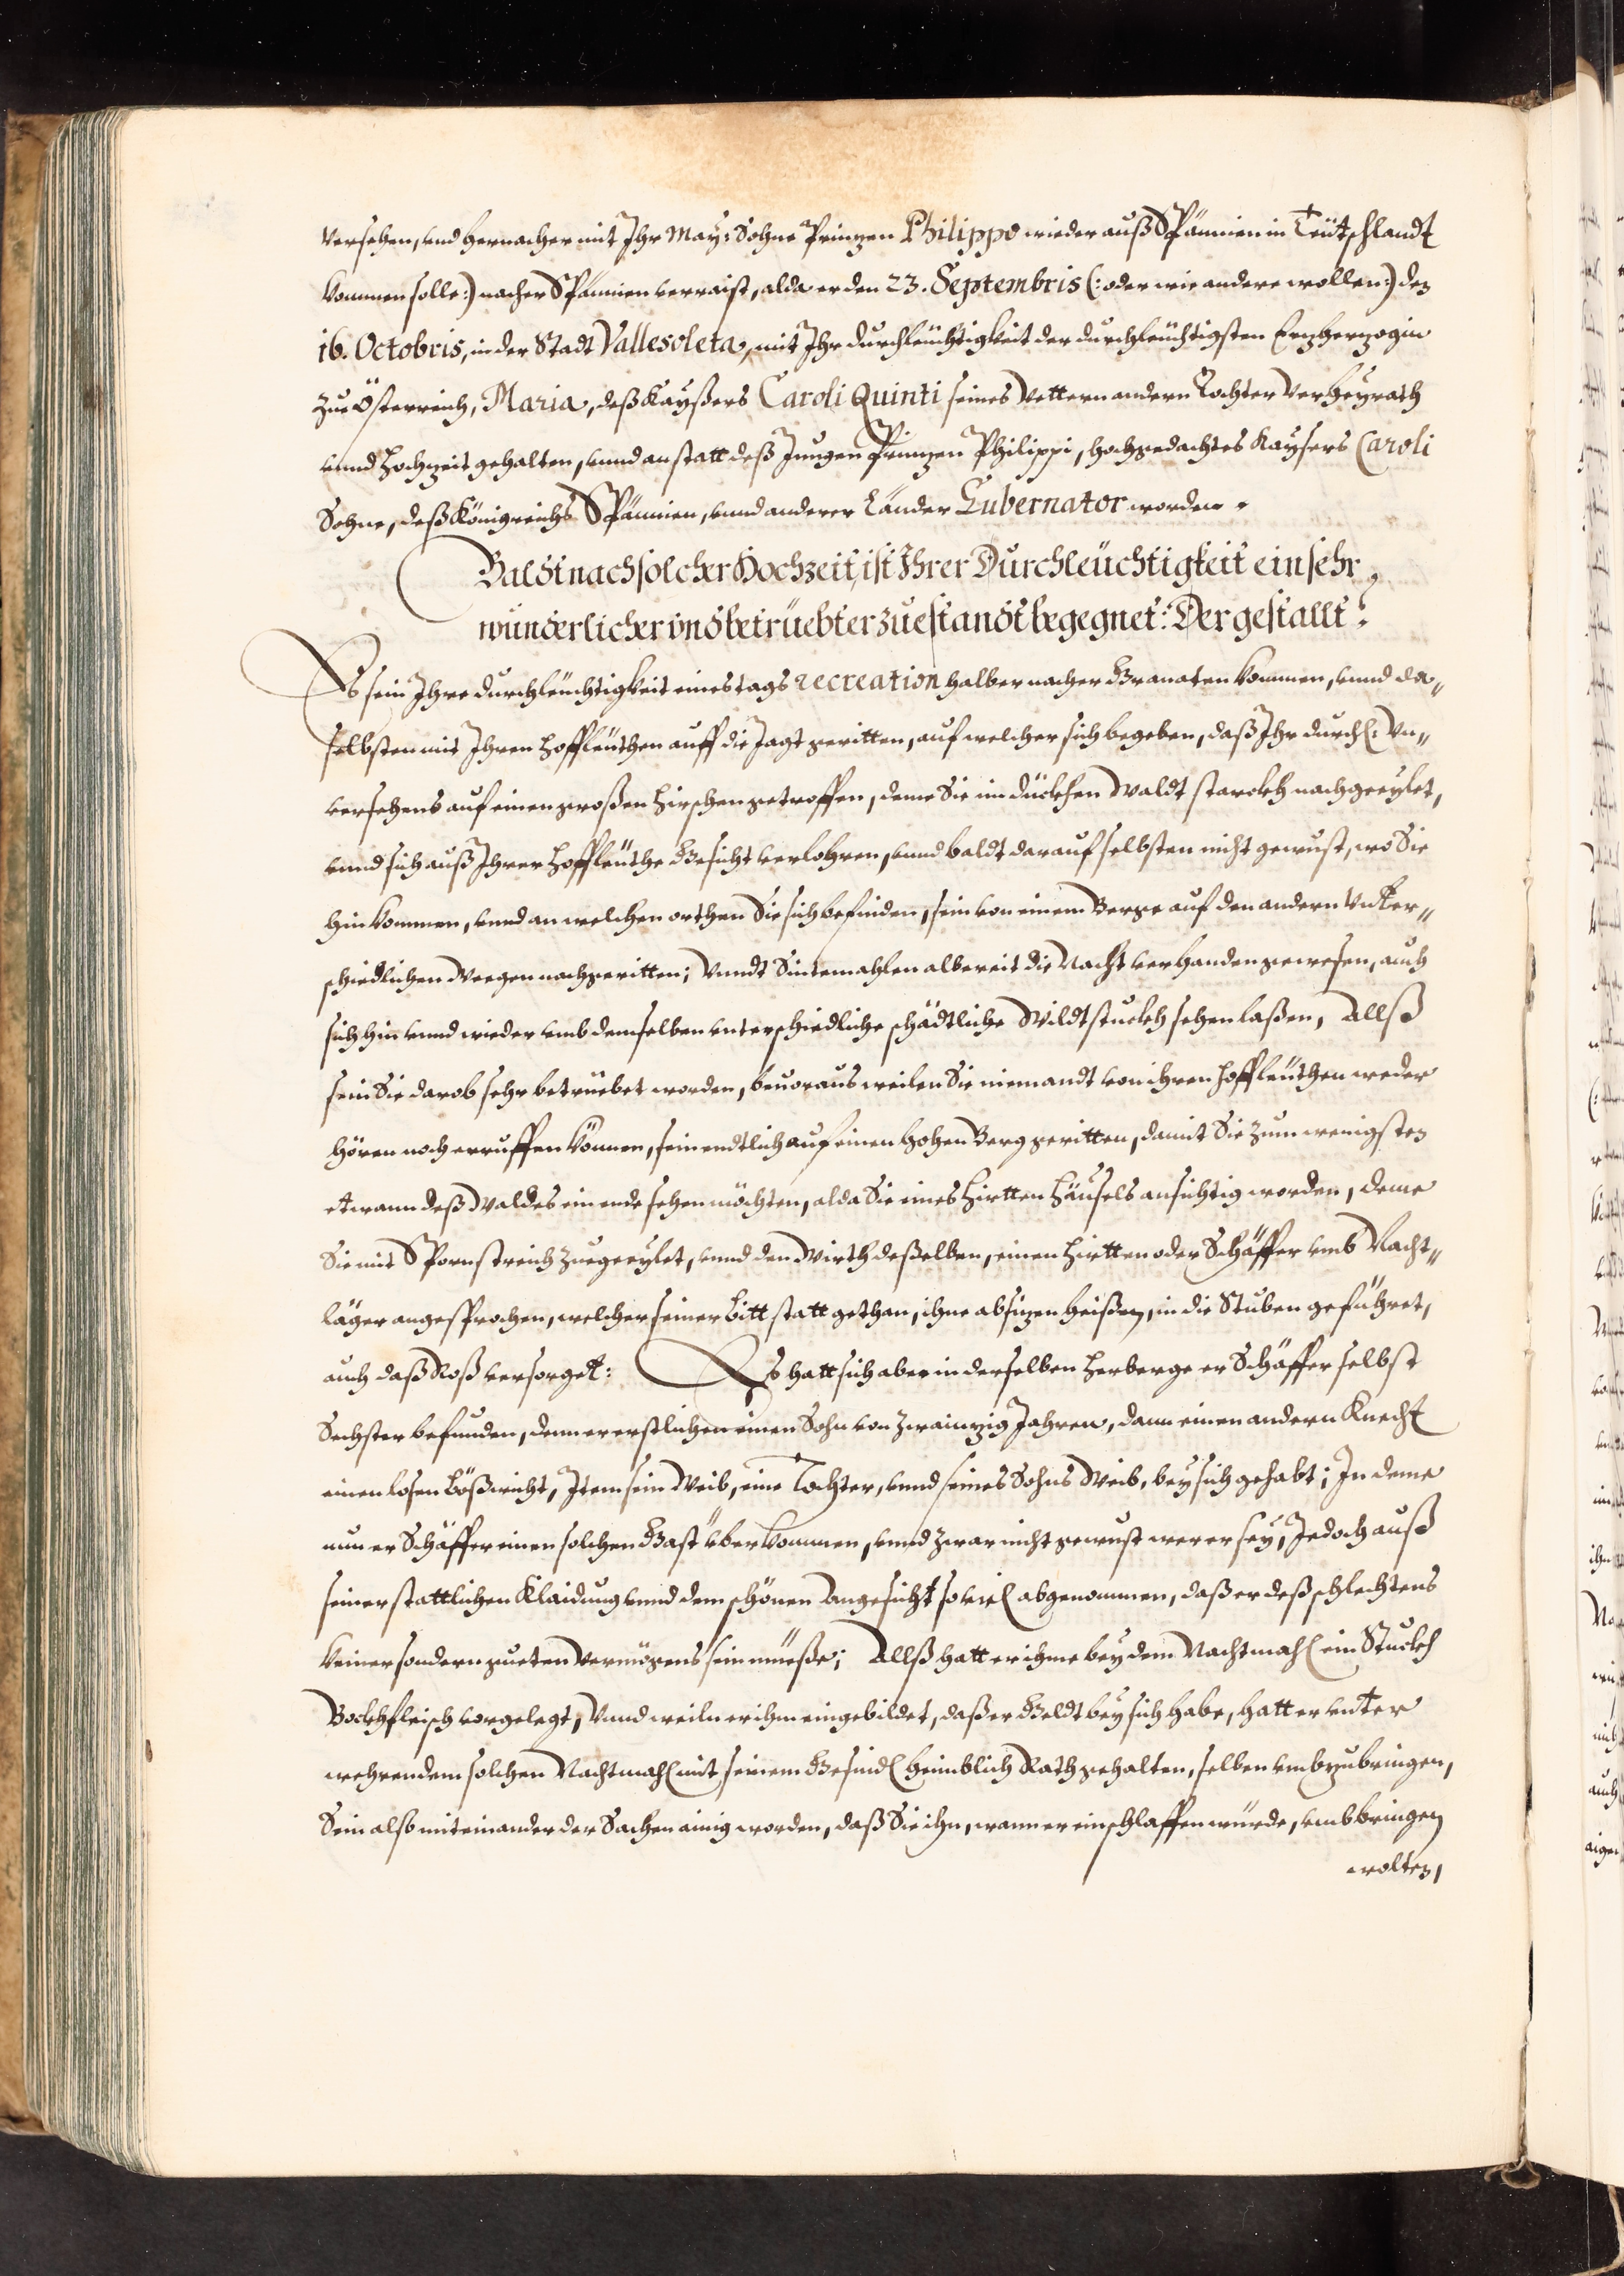 versehen, vnd hernacher mit Ihr May: Sohne Prinzen Philippo wieder auß Spannien in Teütschlandt
kommen solle:) nacher Spannien verraist, alda er den 23. Septembris (: oder wie andere wollen:) den
16. Octobris, in der Stadt Vallesoleta, mit Ihr durchleüchtigkeit der durchleüchtigsten Erzherzogin
zue Österreich, Maria, deß Kayßers Caroli Quinti seines Vettern andern Tochter Verheyrath
vnnd Hochzeit gehalten, vnnd anstatt deß Jungen Prinzen Philippi, hochgedachtes Kaysers Caroli
Sohne, deß Königreichs Spannien, vnnd anderer Länder Gubernator worden.
Baldt nach solcher Hochzeit, ist Ihrer Durchleüchtigkeit ein sehr
wunderlicher vnd betrüebter zuestandt begegnet: Dergestallt:
Es sein Ihre durchleüchtigkeit eines tags recreation halber nacher Granaten kommen, vnnd da„
selbsten mit Ihren Hoffleüthen auff die Jagt geritten, auf welcher sich begeben, daß Ihr durchl: Vn„
versehens auf einen großen Hirschen getroffen, deme Sie im dückhen Waldt starckh nachgeeylet,
vnnd sich auß Ihrer Hoffleüthe Gesicht verlohren, vnnd baldt darauf selbsten nicht gewust, wo Sie
hin kommen, vnnd an welchen orthen Sie sich befinden, sein von einem Berge auf den andern Vnter„
schiedlichen Weegen nachgeritten; Vnndt Sintemahlen albereit die Nacht verhanden gewesen, auch
sich hin vnnd wieder vmb demselben vnterschiedliche schädtliche Wildtstuckh sehen laßen, Allß
sein Sie darob sehr betrüebet worden, beuoraus weilen Sie niemandt von ihren Hoffleüthen weder
hören noch erruffen können, sein endtlich auf einen hohen Berg geritten, damit Sie zum wenigsten
etwann deß Waldes ein ende sehen möchten, alda Sie eines Hirtten Häusels ansichtig worden, deme
Sie mit Spornstreich zuegeeylet, vnnd den Wirth deßelben, einen Hirtten oder Schäffer vmb Nacht„
läger angesprochen, welcher seiner bitt statt gethan, ihne absizen heißen, in die Stuben geführet,
auch daß Roß versorget: Es hatt sich aber in derselben Herberge er Schäffer selbst
Sechster befunden, denn er erstlichen einen Sohn von zwainzig Jahren, dann einen andern Knecht
einen losen bößwicht, Item sein Weib, eine Tochter, vnnd seines Sohns Weib, bey sich gehabt; In deme
nun er Schäffer einen solchen Gast vberkommen, vnnd zwar nicht gewust wer er sey, Jedoch auß
seiner stattlichen Klaidung vnnd dem schönen Angesicht so viel abgenommen, daß er deß schlechtens
keiner sondern gueten Vermögens sein müeße; Allß hatt er ihme bey dem Nachtmahl ein Stuckh
Bockhfleisch vorgelegt, Vnnd weiln er ihm eingebildet, daß er Geldt bey sich habe, hatt er vnter
wehrendem solchen Nachtmahl mit seinem Gesindl heimblich Rath gehalten, selben vmbzubringen,
Sein also miteinander der Sachen ainig worden, daß Sie ihn, wann er einschlaffen würde, vmbbringen
wolten,